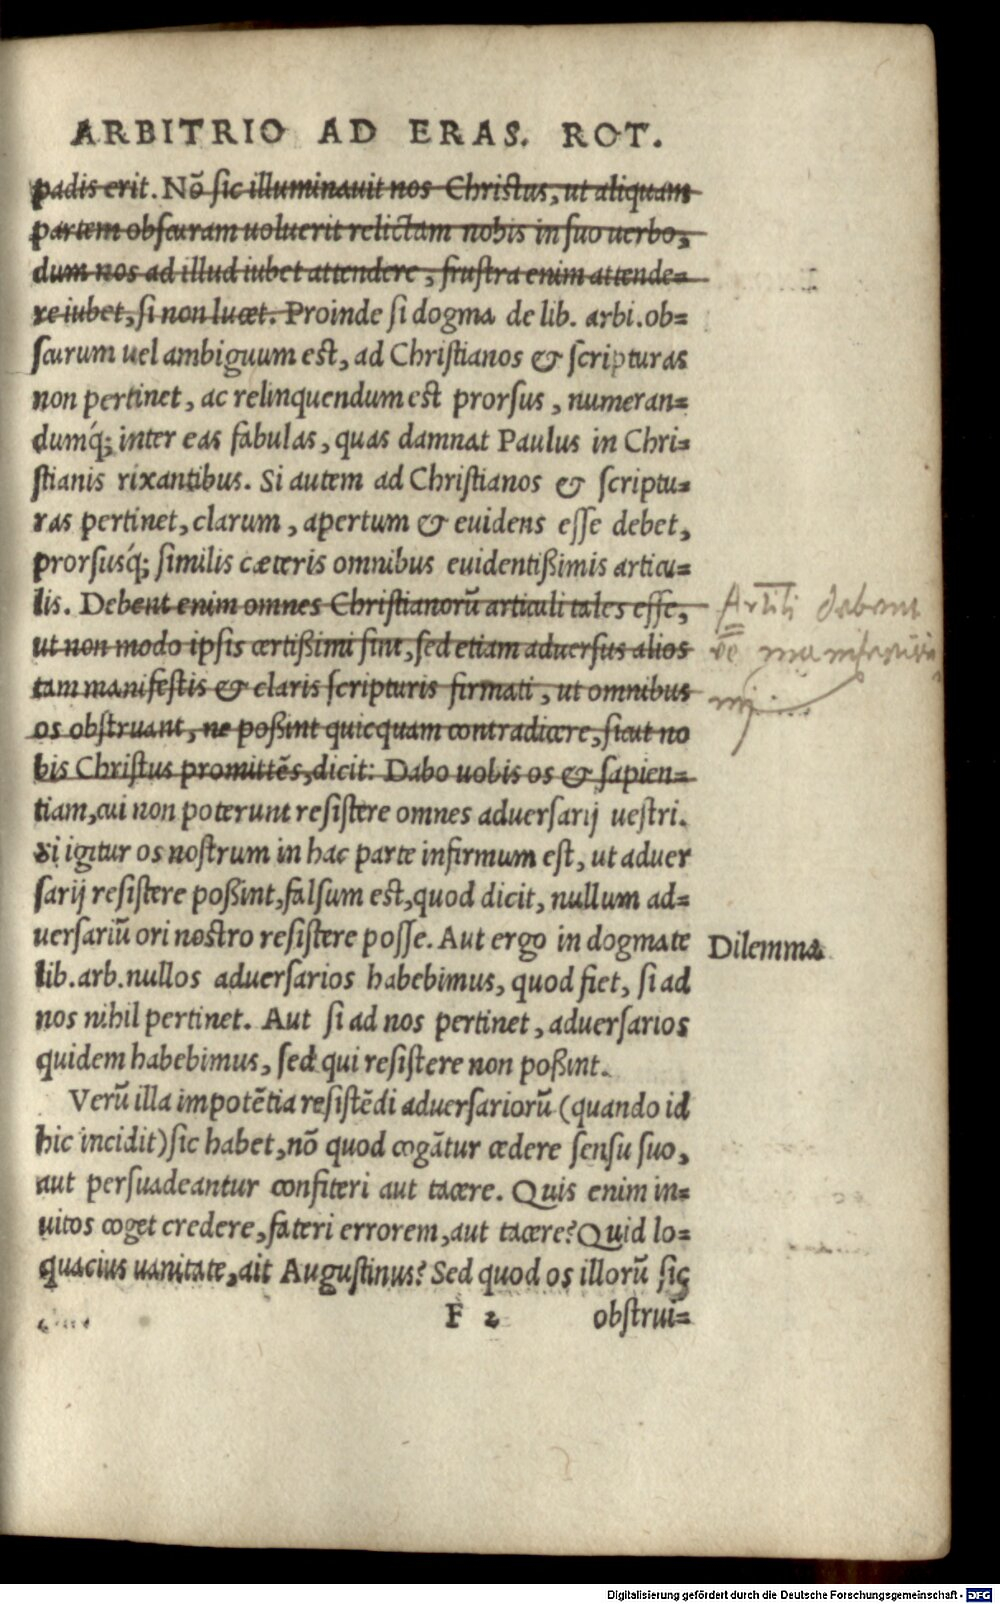 ARBITRIO AD ERAS. ROT.
padis erit. Nō sic illuminauit nos Christus, ut aliquam
partem obscuram uoluerit relictam nobis in suo uerbo,
dum nos ad illud iubet attendere, frustra enim attende=
re iubet, si non lucet. Proinde si dogma de lib. arbi. ob=
scurum uel ambiguum est, ad Christianos & scripturas
non pertinet, ac relinquendum est prorsus, numeran=
dumq́; inter eas fabulas, quas damnat Paulus in Chri=
stianis rixantibus. Si autem ad Christianos & scriptu=
ras pertinet, clarum, apertum & euidens esse debet,
prorsusq́; similis cæteris omnibus euidentißimis articu=
lis. Debent enim omnes Christianorũ articuli tales esse,
ut non modo ipsis certißimi sint, sed etiam aduersus alios
tam manifestis & claris scripturis firmati, ut omnibus
os obstruant, ne poßint quicquam contradicere, sicut no
bis Christus promittẽs, dicit: Dabo uobis os & sapien=
tiam, cui non poterunt resistere omnes aduersarij uestri.
Si igitur os nostrum in hac parte infirmum est, ut aduer
sarij resistere poßint, falsum est, quod dicit, nullum ad=
uersariũ ori nostro resistere posse. Aut ergo in dogmate
lib. arb. nullos aduersarios habebimus, quod fiet, si ad
nos nihil pertinet. Aut si ad nos pertinet, aduersarios
quidem habebimus, sed qui resistere non poßint.
Verũ illa impotẽtia resistẽdi aduersariorũ (quando id
hic incidit) sic habet, nō quod cogãtur cedere sensu suo,
aut persuadeantur confiteri aut tacere. Quis enim in=
uitos coget credere, fateri errorem, aut tacere? Quid lo=
quacius uanitate, ait Augustinus? Sed quod os illorũ sic
F 2 obstrui=
debent
Dilemma